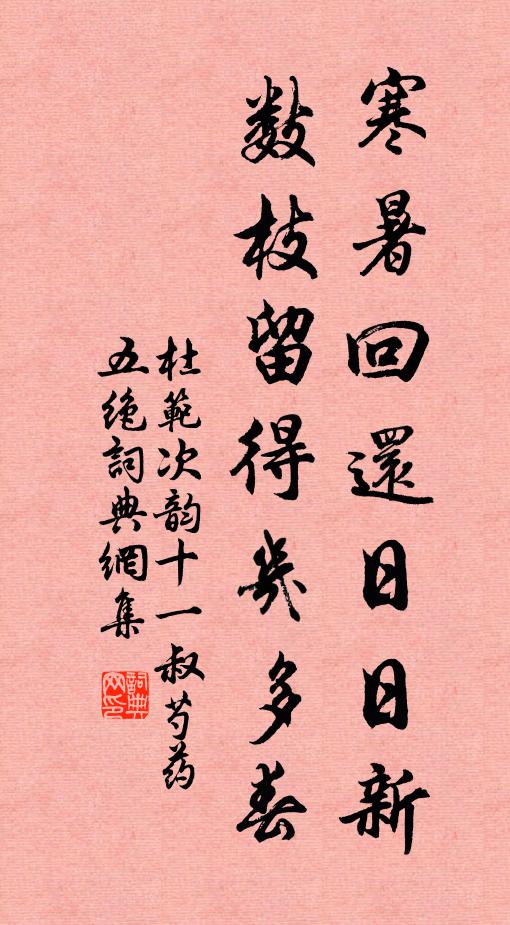 寒暑回還日日新
數枝留得幾多春
杜範次韵十一叔芍药
五绝詞典網集
詞典网印